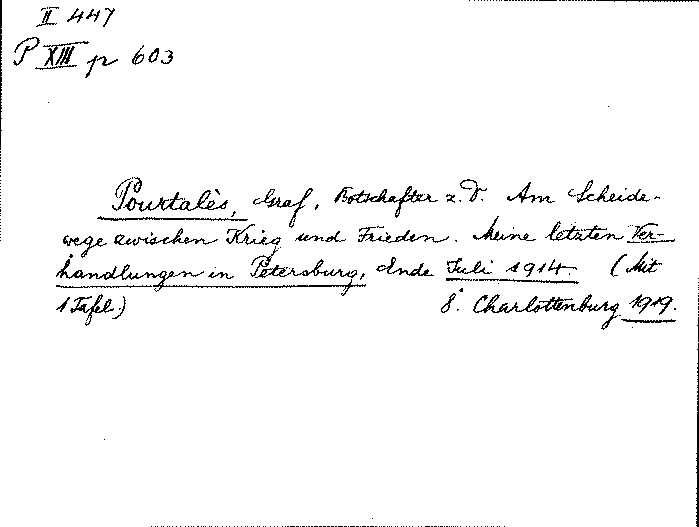 II 447
P XIII p 603
Pourtalès, Graf, Botschafter z. D. Am Scheide-
wege zwischen Krieg und Frieden. Meine letzten Ver-
handlungen in Petersburg, Ende Juli 1914. (Mit
1 Tafel.) 8°. Charlottenburg 1919.